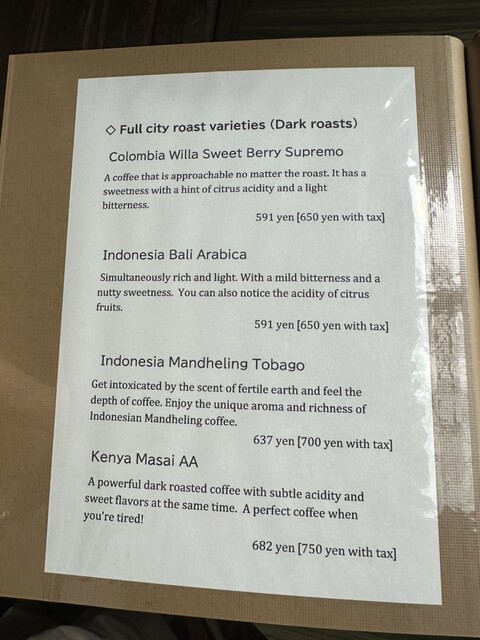 ◇ Full city roast varieties (Dark roasts)
Colombia Willa Sweet Berry Supremo
A coffee that is approachable no matter the roast. It has a
sweetness with a hint of citrus acidity and a light
bitterness.
591 yen [650 yen with tax]
Indonesia Bali Arabica
Simultaneously rich and light. With a mild bitterness and a
nutty sweetness. You can also notice the acidity of citrus
fruits.
591 yen [650 yen with tax]
Indonesia Mandheling Tobago
Get intoxicated by the scent of fertile earth and feel the
depth of coffee. Enjoy the unique aroma and richness of
Indonesian Mandheling coffee.
637 yen [700 yen with tax]
Kenya Masai AA
A powerful dark roasted coffee with subtle acidity and
sweet flavors at the same time. A perfect coffee when
you're tired!
682 yen [750 yen with tax]